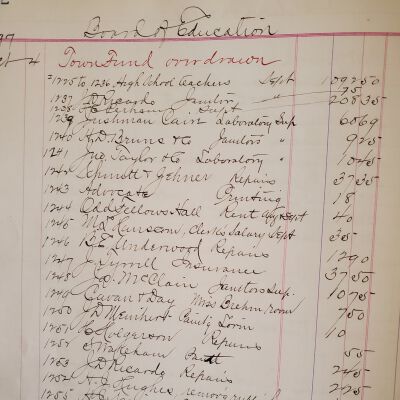 Board of Education
Oct 4 Town Fund overdrawn
1225 to 1236, High School teachers Sept 109250
1237 J D Ricardo Janitor " 75
1238 Supt 20835
1239 Cushman Cain Laboratory Sup 6069
1240 H. D. Bruns & Co Janitors " 925
1241 Jno. Taylor & Co Laboratory " 1045
1242 & Zehner Repairs 3735
1243 Advocate Printing 18
1244 Odd Fellows Hall Rent Aug & Sept 40
1245 Clerks Salary Sept 35
1246 R. E. Underwood Repairs 1290
1247 J. Tyrrell Insurance 3750
1248 J. D. McClain Janitors Sup. 1075
1249 Gavan & Day Miss Brehm, room 750
1250 J D 10
1251 Repairs
1252 55
1253 J D Ricardo Repairs 245
1254 H. J. Hughes, removing 225
1255